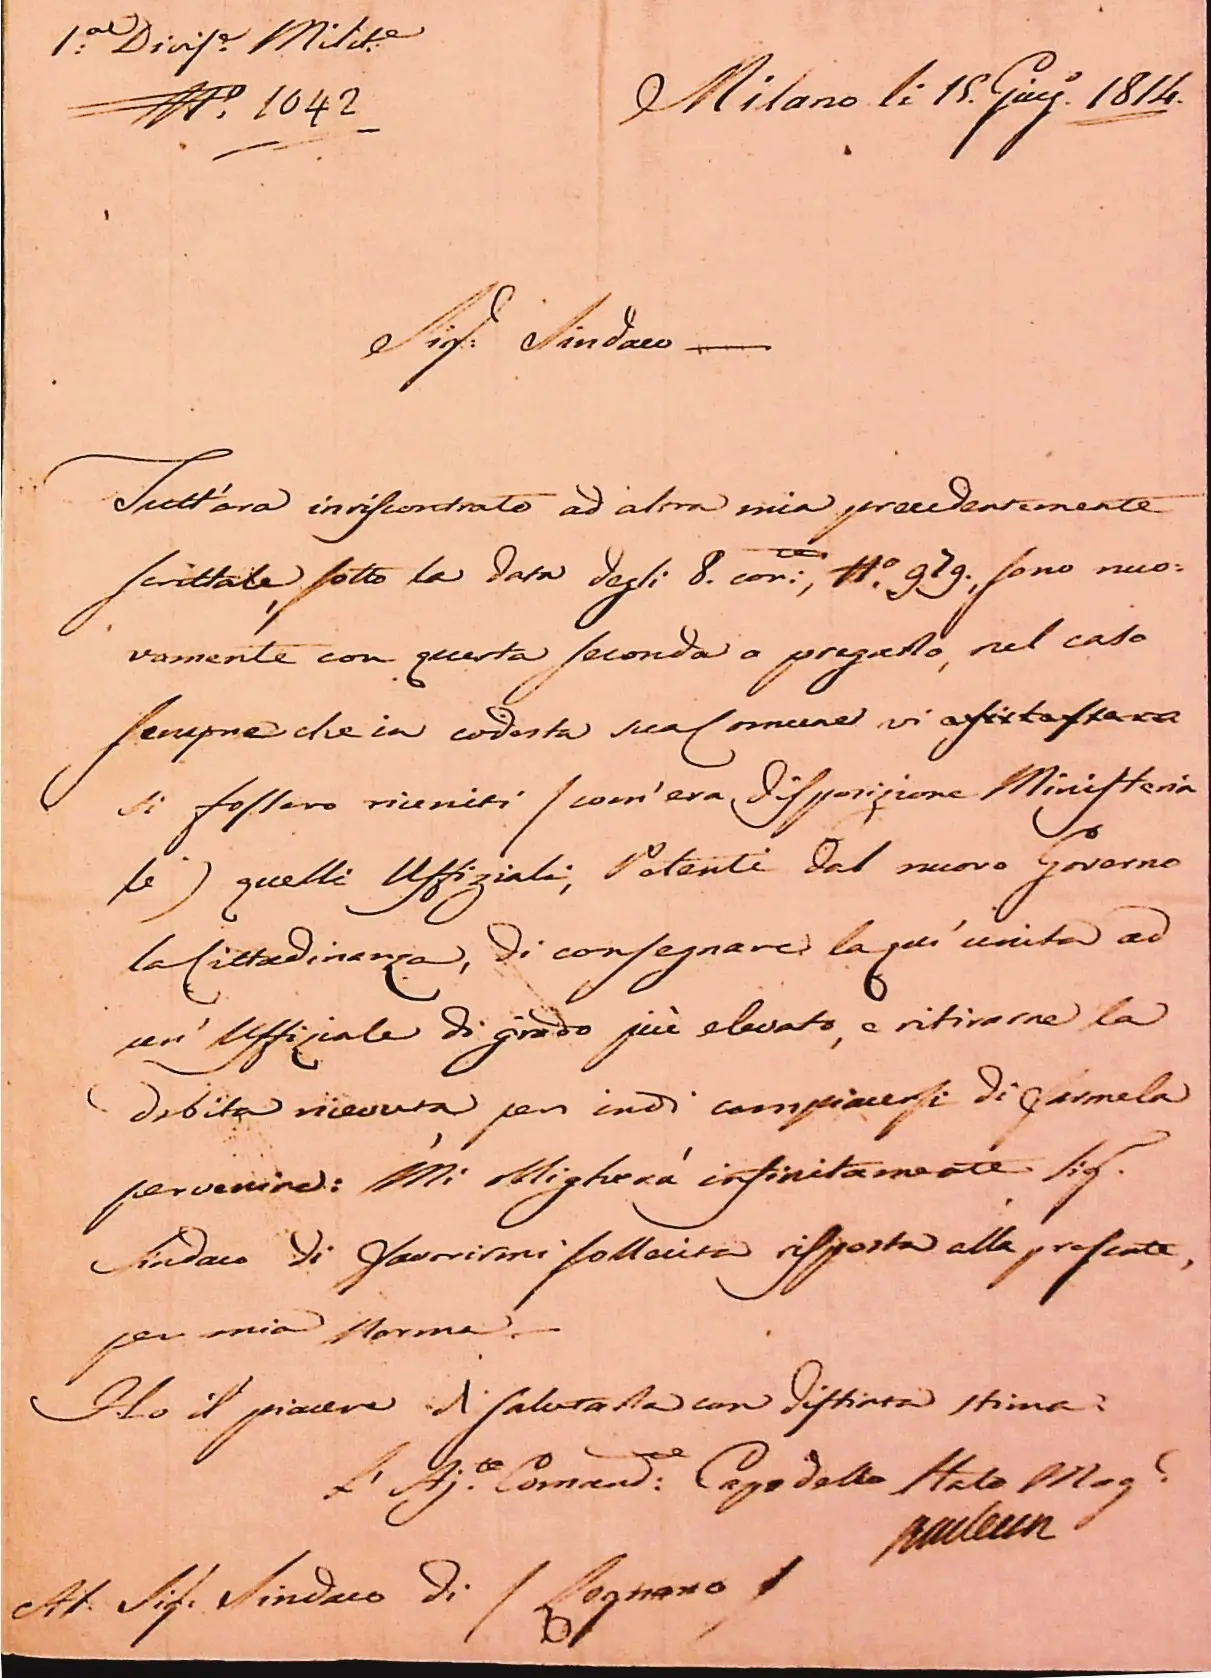 1.ª Divisᵉ. Milit.ᵉ
N.º 1042
Milano li 15. Giug.º 1814.
Sig.ʳ Sindaco
Tutt'ora inriscontrato ad altra mia precedentemente
scrittale, sotto la data degli 8. corr.ᵗᵉ, N.º 979., sono nuo:
vamente con questa seconda a pregarlo, nel caso
sempre che in codesta sua Comune vi
si fossero riuniti / com'era disposizione Ministeria
le ) quelli Uffiziali, Petenti dal nuovo Governo
la Cittadinanza, di consegnare la quì unita ad
un' Uffiziale di grado più elevato, e ritirarne la
debita ricevuta per indi compiacersi di farmela
pervenire: Mi obligherà infinitamente Sig.ʳ
Sindaco di favorirmi sollecita risposta alla presente,
per mia norma.
Ho il piacere di salutarla con distinta stima.
L' Aj.ᵗᵉ Comand.ᵗᵉ Capo dello Stato Mag.ʳᵉ
Al Sig.ʳ Sindaco di / Sognano /